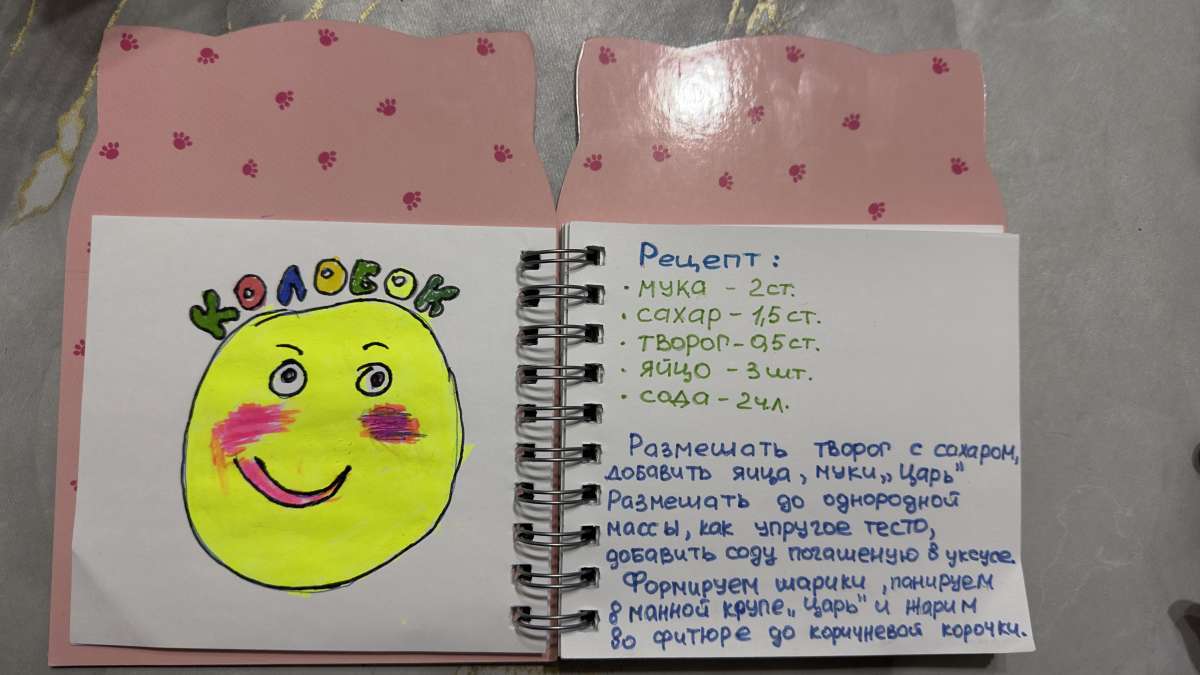 КОЛОБОК
Рецепт:
• мука - 2 ст.
• сахар - 1,5 ст.
• творог - 0,5 ст.
• яйцо - 3 шт.
• сода - 2 ч.л.
Размешать творог с сахаром,
добавить яйца, муки „Царь"
Размешать до однородной
массы, как упругое тесто,
добавить соду погашеную в уксусе.
Формируем шарики, панируем
в манной крупе „Царь" и жарим
во фитюре до коричневой корочки.